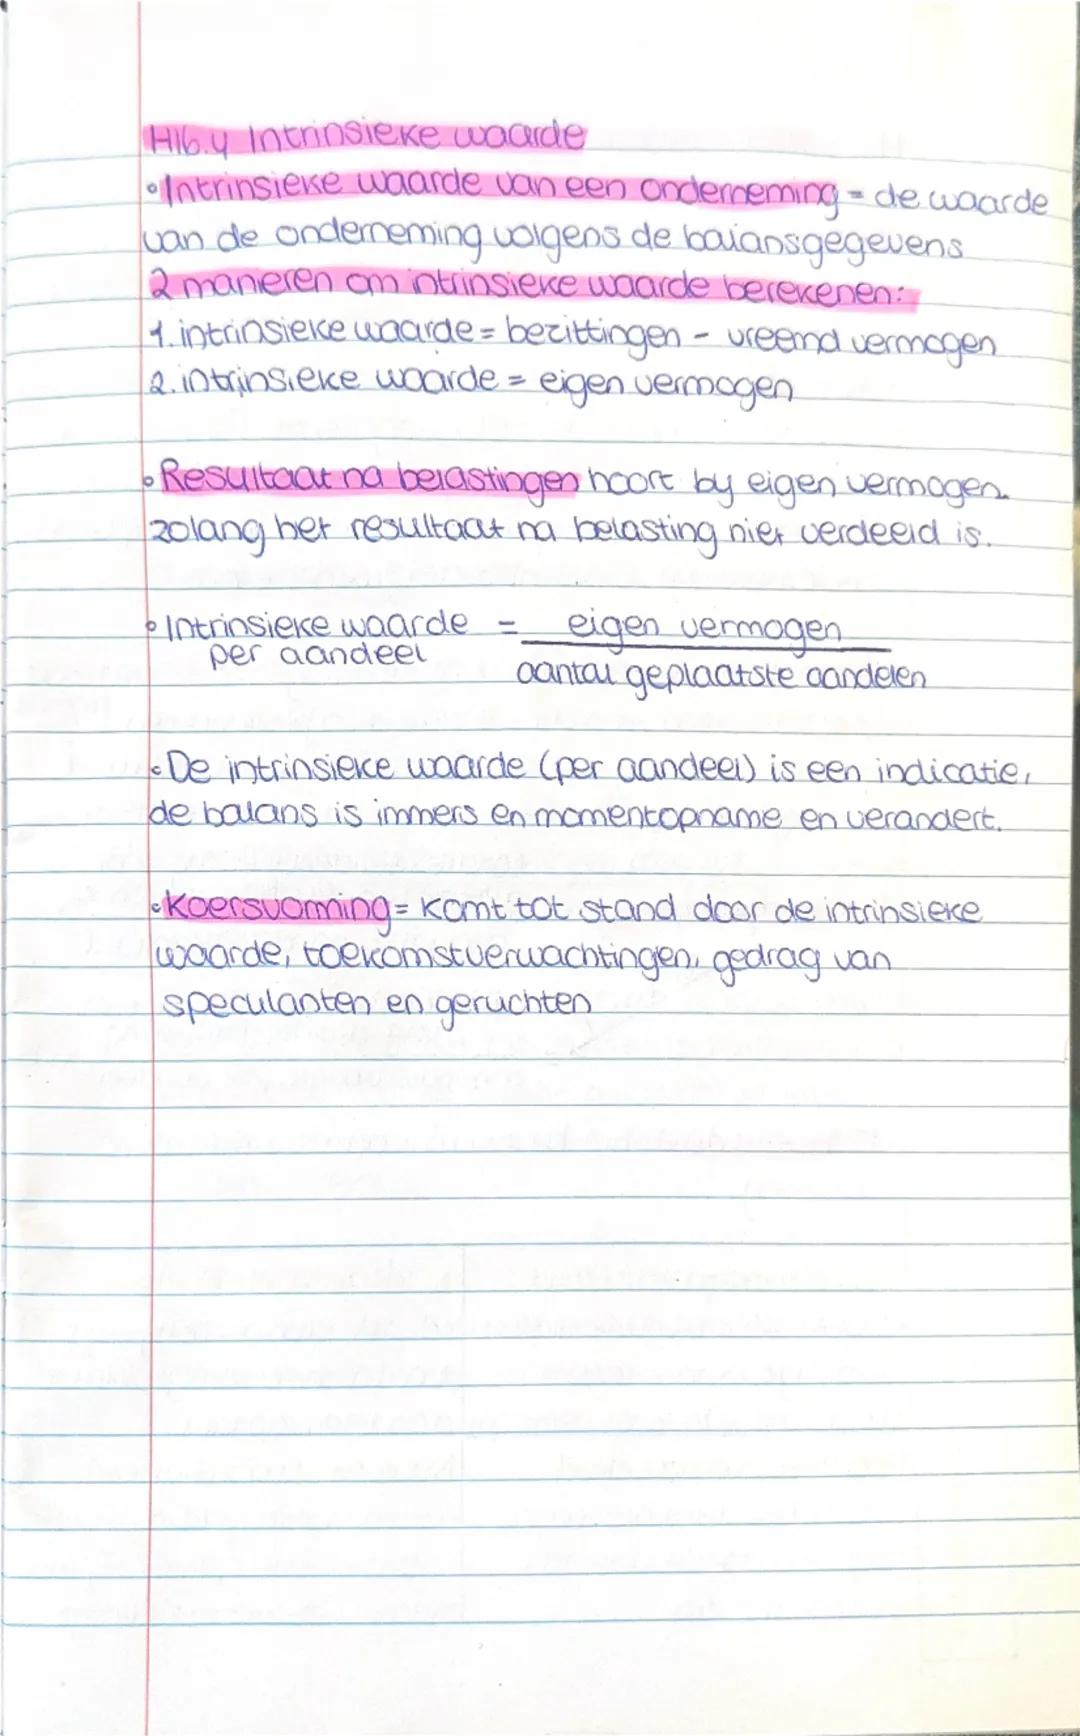 H16.4 Intrinsieke waarde
• Intrinsieke waarde van een onderneming = de waarde
van de onderneming volgens de balansgegevens
2 manieren om intrinsieke waarde berekenen:
1. intrinsieke waarde = bezittingen - vreemd vermogen
2. intrinsieke waarde = eigen vermogen
• Resultaat na belastingen hoort by eigen vermogen.
zolang het resultaat na belasting niet verdeeld is.
• Intrinsieke waarde = eigen vermogen
per aandeel aantal geplaatste aandelen
• De intrinsieke waarde (per aandeel) is een indicatie,
de balans is immers en momentopname en verandert.
• Koersvorming = komt tot stand door de intrinsieke
waarde, toekomstverwachtingen, gedrag van
speculanten en geruchten